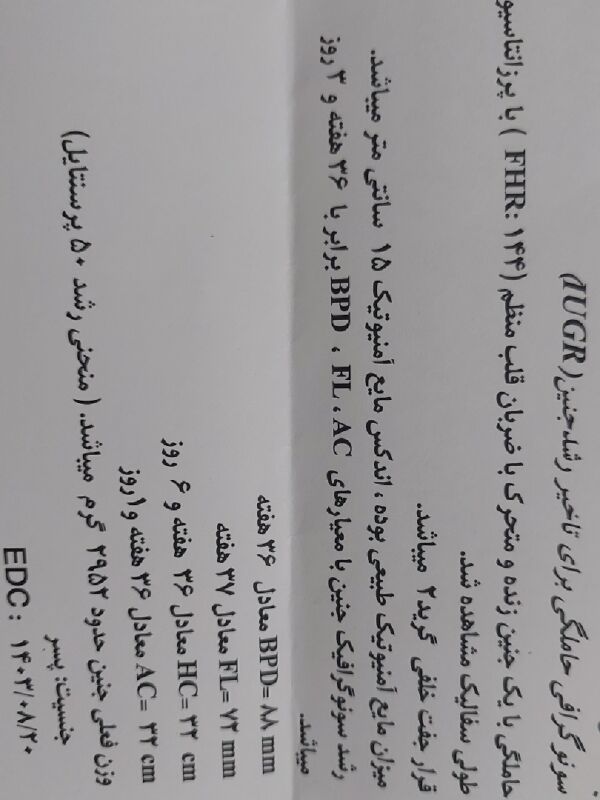 سونوگرافی حاملگی برای تاخیر رشدجنین(IUGR)
حاملگی با یک جنین زنده و متحرک با ضربان قلب منظم (FHR: ۱۴۴ ) با پرزانتاسیو
طولی سفالیک مشاهده شد.
قرار جفت خلفی گرید۲ میباشد.
میزان مایع آمنیوتیک طبیعی بوده ، اندکس مایع آمنیوتیک ۱۵ سانتی متر میباشد.
رشد سونوگرافیک جنین با معیارهای BPD ، FL ، AC برابر با ۳۶ هفته و ۳ روز
میباشد.
BPD= ۸۸ mm معادل ۳۶ هفته
FL= ۷۲ mm معادل ۳۷ هفته
HC= ۳۲ cm معادل ۳۶ هفته و ۶ روز
AC= ۳۲ cm معادل ۳۶ هفته و ۱روز
وزن فعلی جنین حدود ۲۹۵۲ گرم میباشد. ( منحنی رشد ۵۰ پرسنتایل)
جنسیت: پسر
EDC : ۱۴۰۳/۰۸/۲۰